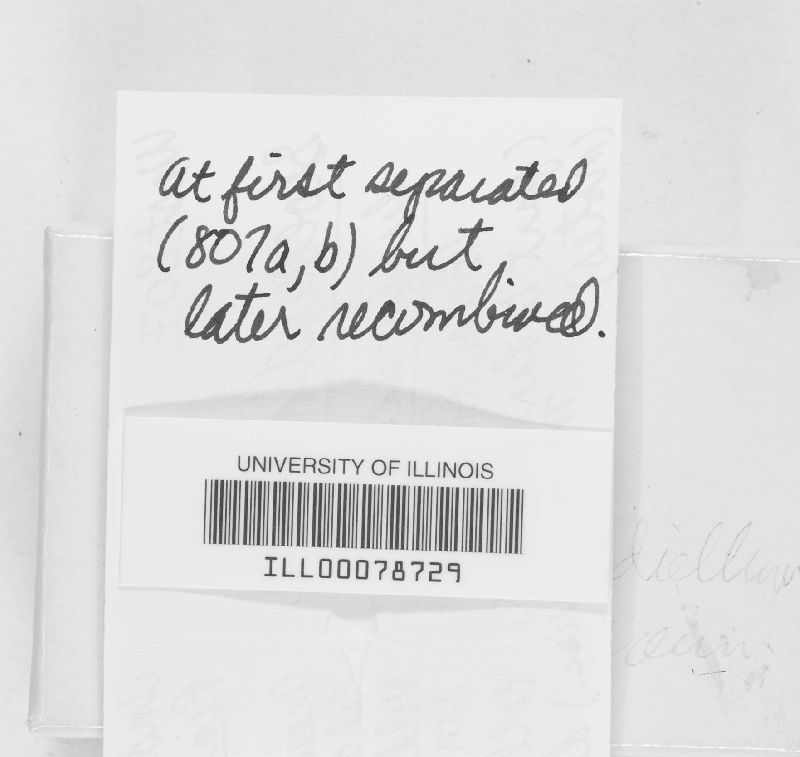 at first separated
(807a, b) but
later recombined.
UNIVERSITY OF ILLINOIS
ILL00078729